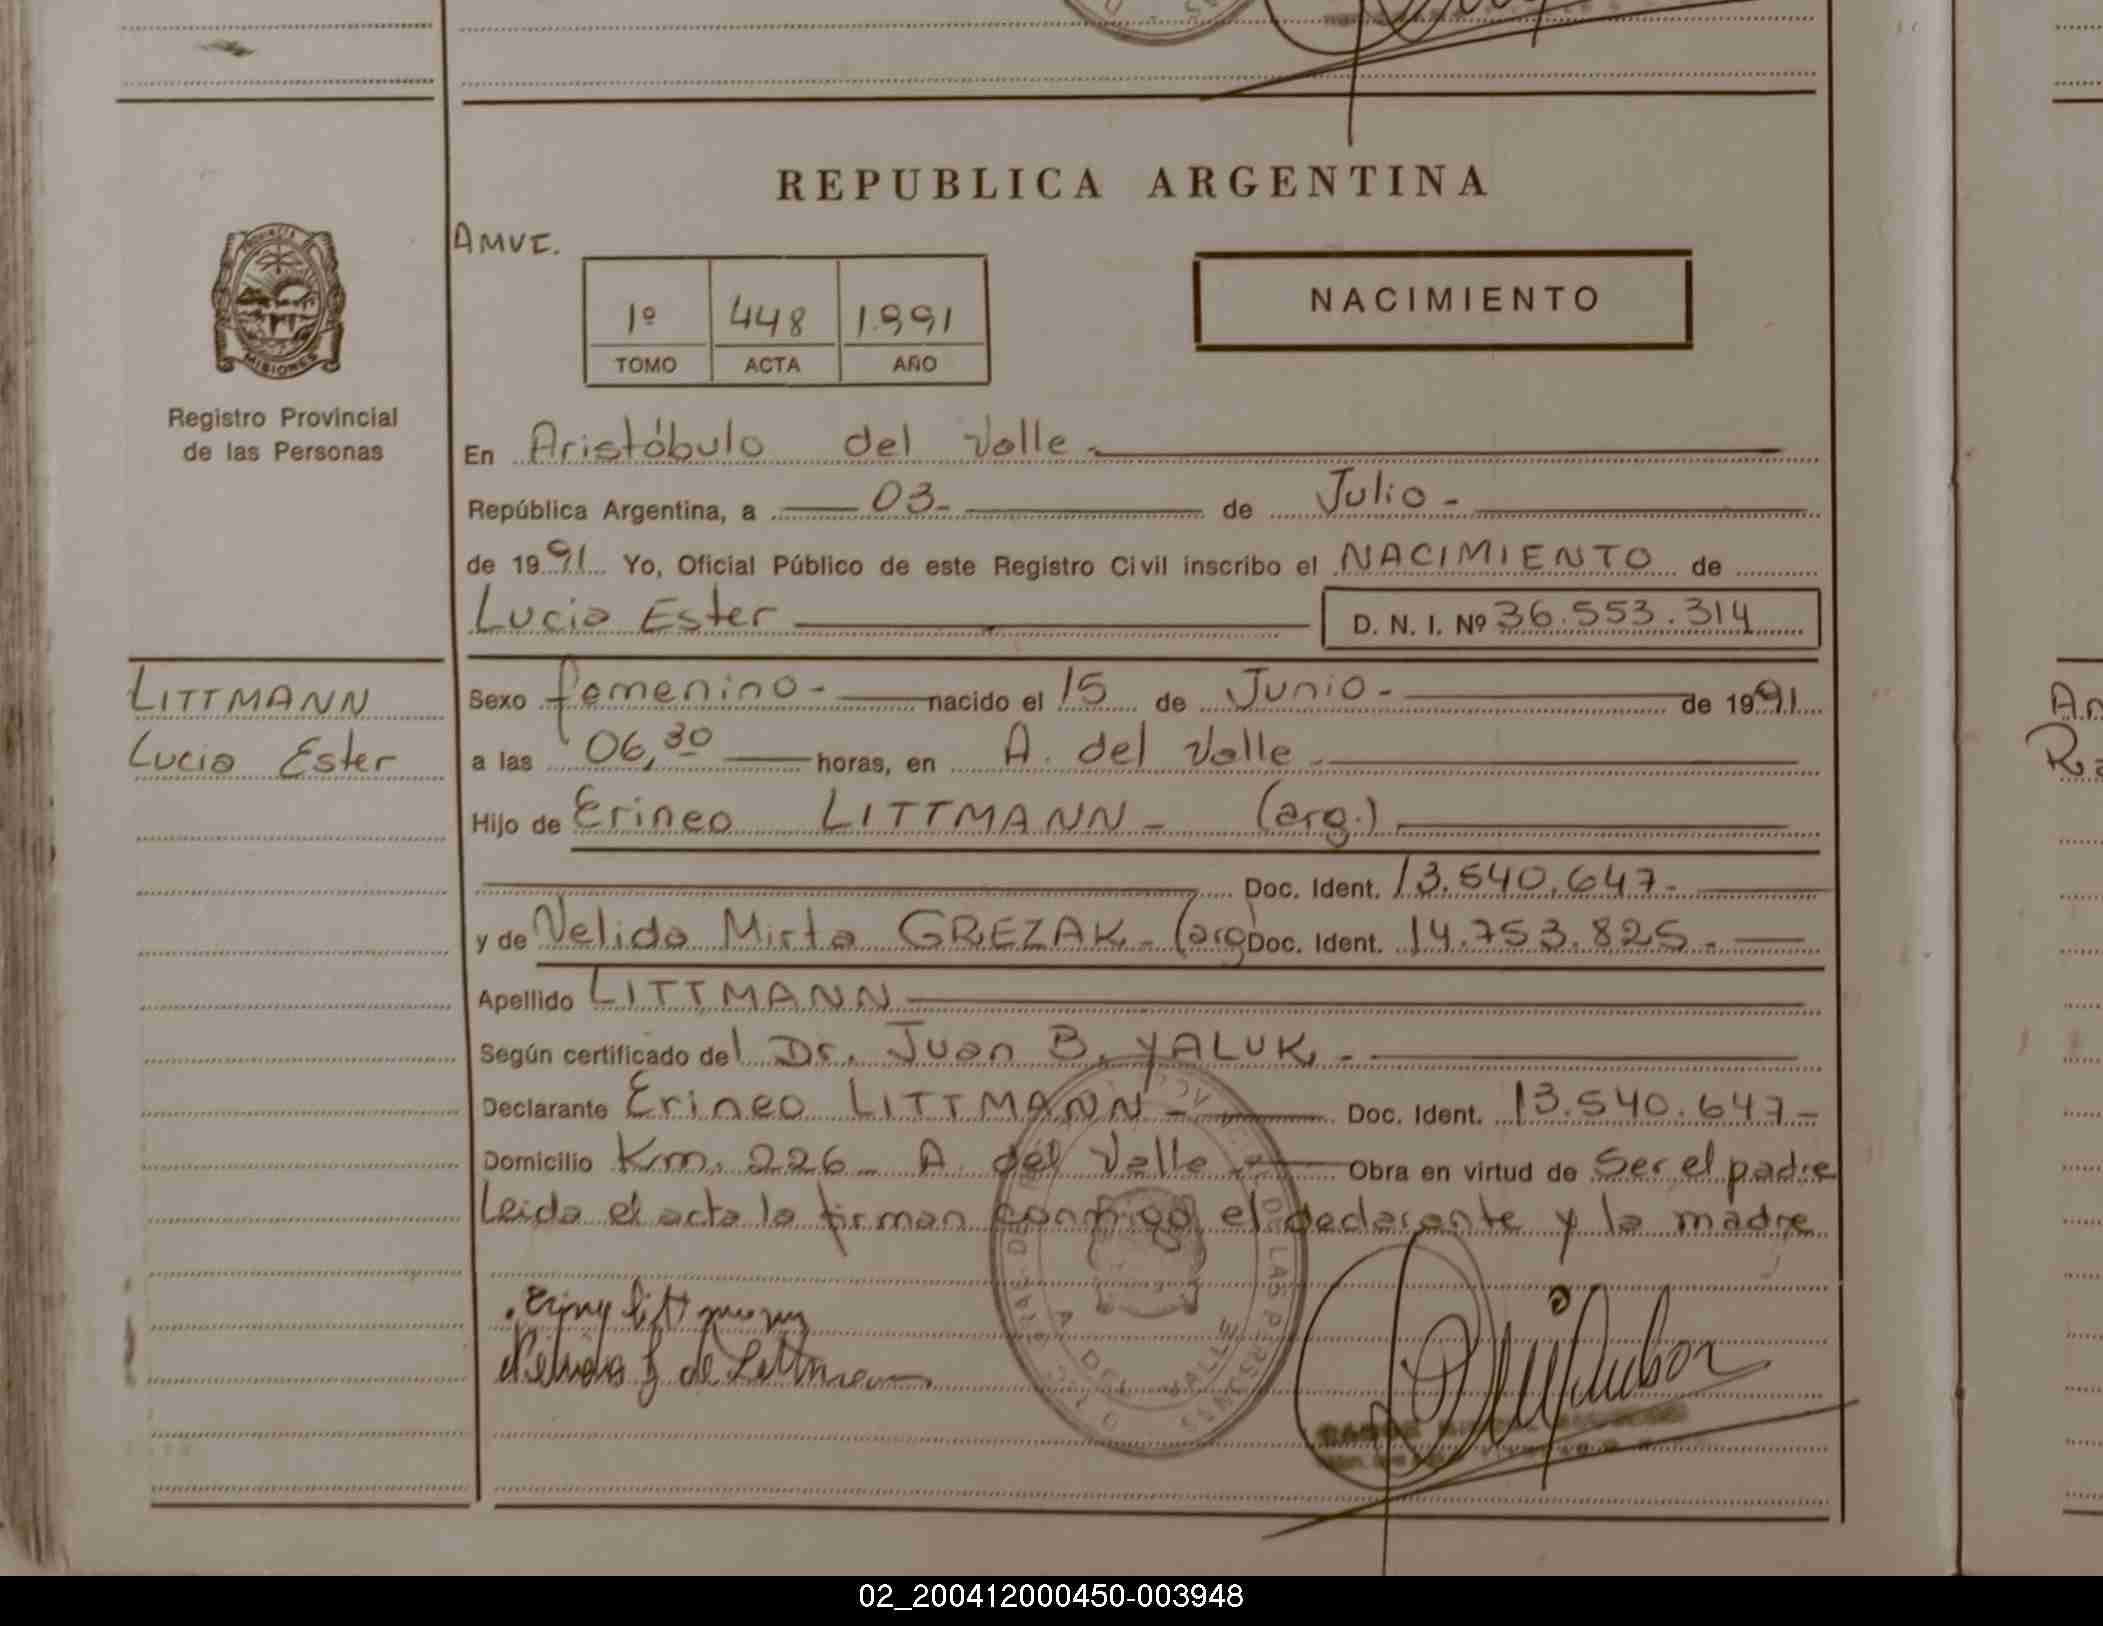 REPUBLICA ARGENTINA
PROVINCIA DE
MISIONES
Registro Provincial
de las Personas
AMVE.
1º 448 1.991
TOMO ACTA AÑO
NACIMIENTO
En Aristóbulo del Valle
República Argentina, a 03- de Julio -
de 1991 Yo, Oficial Público de este Registro Civil inscribo el NACIMIENTO de
Lucia Ester D. N. I. Nº 36.553.314
LITTMANN
Lucia Ester
Sexo femenino - nacido el 15 de Junio - de 1991
a las 06,30 horas, en A. del Valle
Hijo de Erineo LITTMANN - (arg.)
Doc. Ident. 13.540.647-
y de Nelida Mirta GREZAK - (arg) Doc. Ident. 14.753.825.-
Apellido LITTMANN
Según certificado del Dr. Juan B. YALUK. -
Declarante Erineo LITTMANN - Doc. Ident. 13.540.647-
Domicilio Km. 226 A. del Valle - Obra en virtud de Ser el padre
Leida el acta la firman conmigo el declarante y la madre
LAS PERSONAS
A. DEL VALLE
de Littmann
An
Ra
02_200412000450-003948